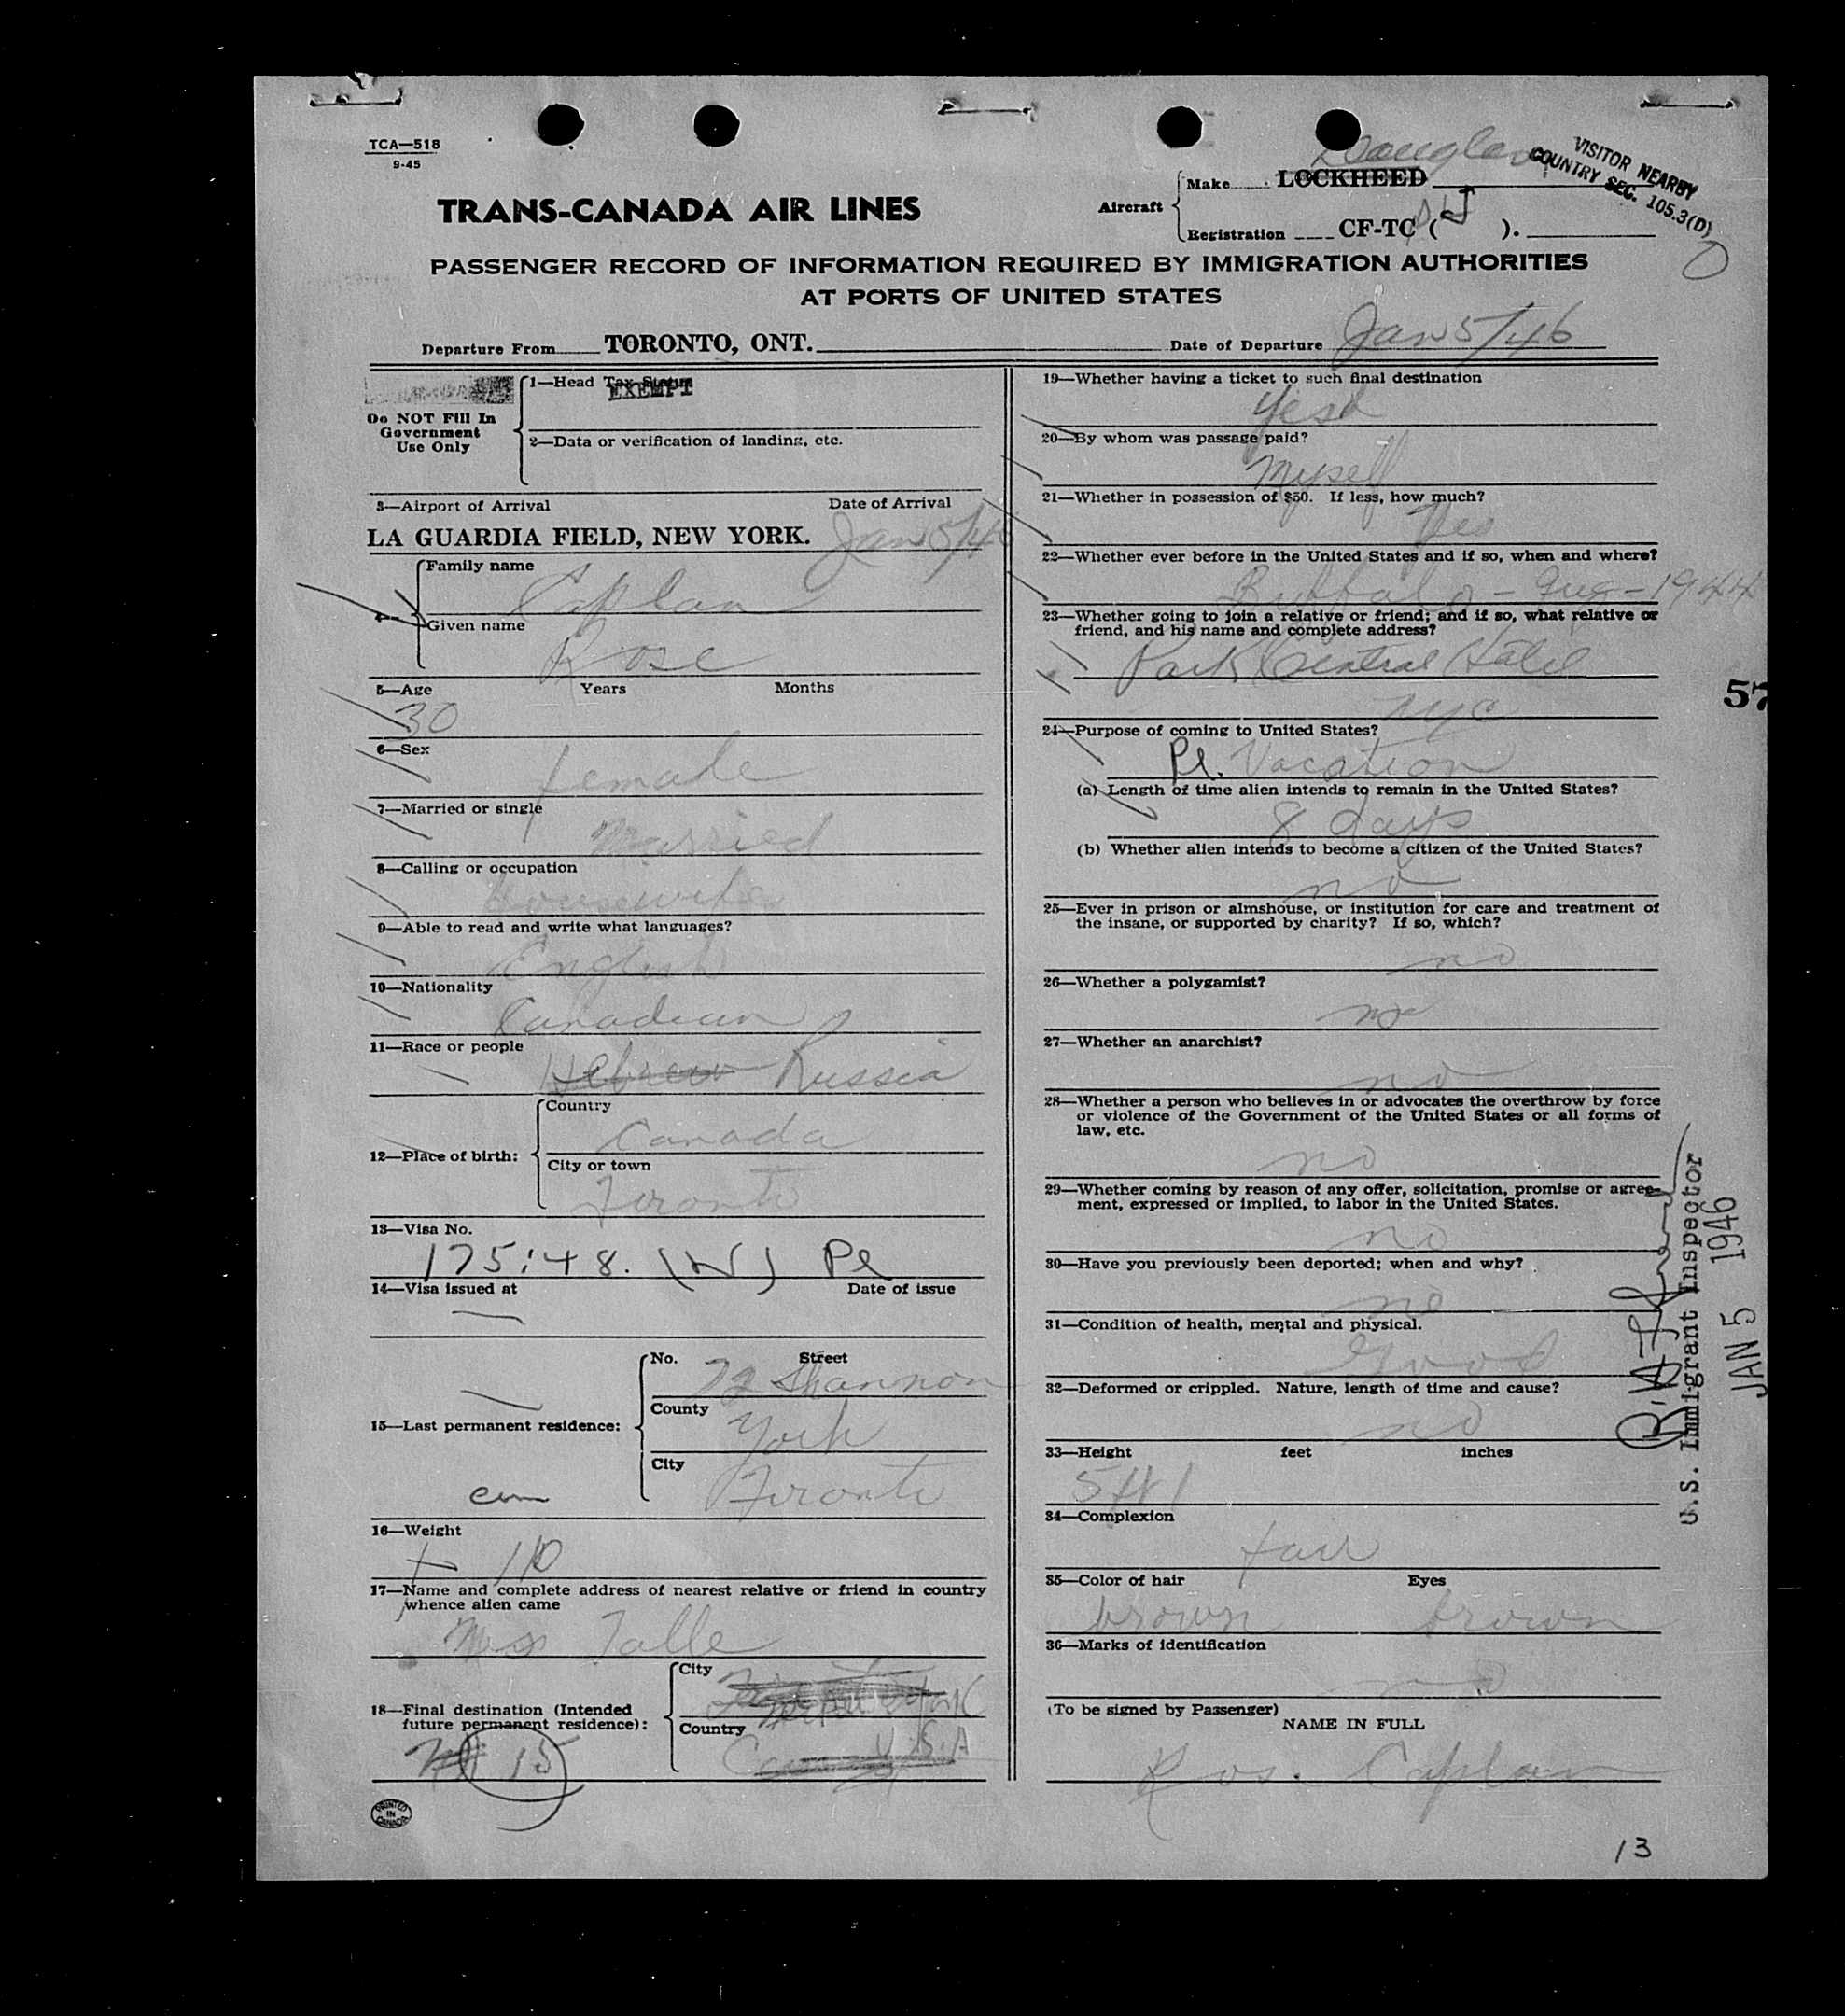 TCA—518
9-45
Douglas
VISITOR NEARBY
COUNTRY SEC. 105.3(D)
Make LOCKHEED
TRANS-CANADA AIR LINES
Aircraft
Registration CF-TC ( ).
PASSENGER RECORD OF INFORMATION REQUIRED BY IMMIGRATION AUTHORITIES
AT PORTS OF UNITED STATES
Departure From TORONTO, ONT. Date of Departure Jan 5/46
Do NOT Fill In
Government
Use Only
1—Head Tax Status
EXEMPT
2—Data or verification of landing, etc.
3—Airport of Arrival Date of Arrival
LA GUARDIA FIELD, NEW YORK. Jan 5/46
Family name
Caplan
4—
Given name
Rose
5—Age Years Months
30
6—Sex
female
7—Married or single
Married
8—Calling or occupation
housewife
9—Able to read and write what languages?
English
10—Nationality
Canadian
11—Race or people
Hebrew Russia
12—Place of birth:
Country
Canada
City or town
Toronto
13—Visa No.
175:48. (W) Pl
14—Visa issued at Date of issue
—
15—Last permanent residence:
No. Street
72 Shannon
County
York
City
Toronto
16—Weight
110
17—Name and complete address of nearest relative or friend in country
whence alien came
Talle
18—Final destination (Intended
future permanent residence):
City
New York
Country
U.S.A
15
PRINTED
IN
CANADA
19—Whether having a ticket to such final destination
Yes
20—By whom was passage paid?
Myself
21—Whether in possession of $50. If less, how much?
Yes
22—Whether ever before in the United States and if so, when and where?
Buffalo - Aug - 1944
23—Whether going to join a relative or friend; and if so, what relative or
friend, and his name and complete address?
Park Central Hotel
NYC
24—Purpose of coming to United States?
Pl. Vacation
(a) Length of time alien intends to remain in the United States?
8 days
(b) Whether alien intends to become a citizen of the United States?
no
25—Ever in prison or almshouse, or institution for care and treatment of
the insane, or supported by charity? If so, which?
no
26—Whether a polygamist?
no
27—Whether an anarchist?
no
28—Whether a person who believes in or advocates the overthrow by force
or violence of the Government of the United States or all forms of
law, etc.
no
29—Whether coming by reason of any offer, solicitation, promise or agree-
ment, expressed or implied, to labor in the United States.
no
30—Have you previously been deported; when and why?
no
31—Condition of health, mental and physical.
Good
32—Deformed or crippled. Nature, length of time and cause?
no
33—Height feet inches
5 ft 1
34—Complexion
fair
35—Color of hair Eyes
brown brown
36—Marks of identification
(To be signed by Passenger)
NAME IN FULL
Rose Caplan
57
U.S. Immigrant Inspector
JAN 5 1946
13